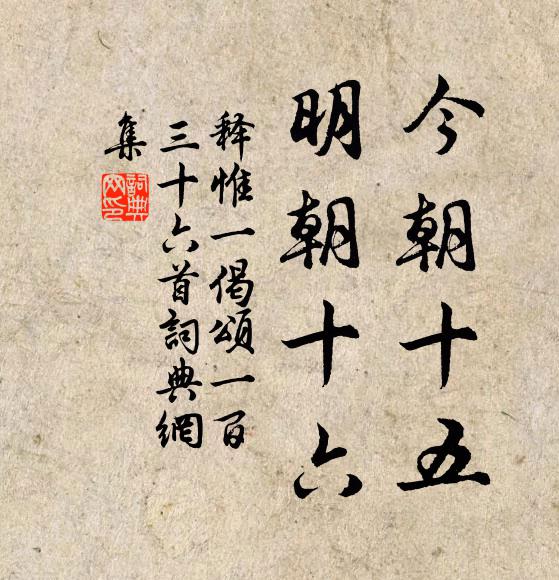 今朝十五
明朝十六
释惟一偈頌一百
三十六首詞典網
集
詞典網印